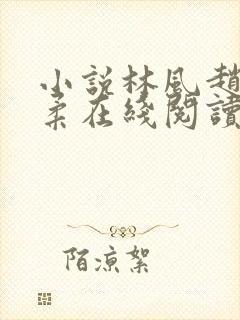 小說林風趙
柔在綫閱讀
陌涼絮